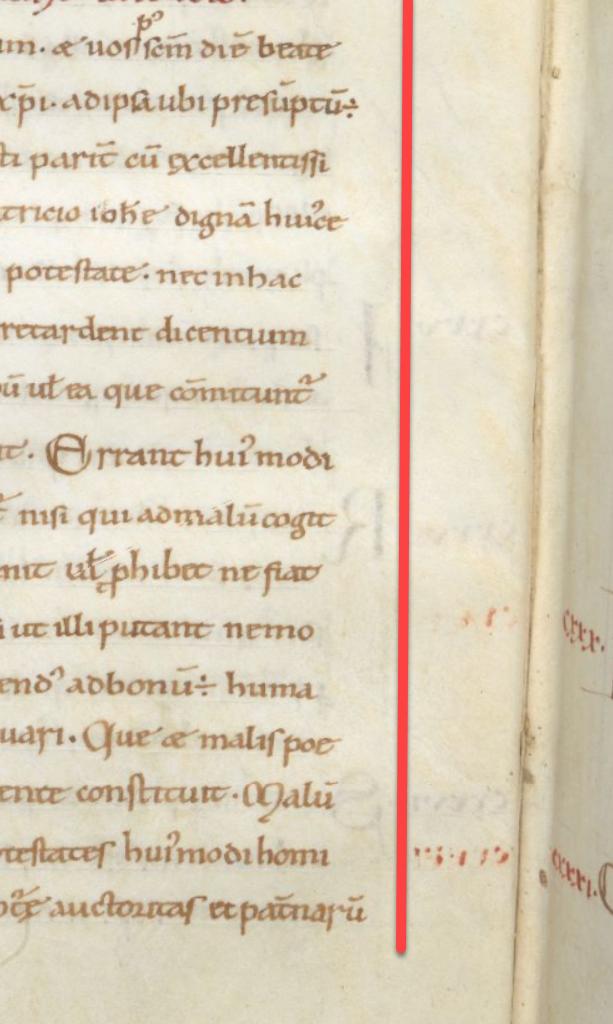 um. & uos scīm diē beate
p⁹
xp̄i. ad ipsa ubi presūptū÷
ti parit̄ cū excellentissi
tricio ioh̄e dignā hui⁹ce
potestate. nec in hac
retardent dicentium
ū ul̄ ea que cōmitunt᷑
it. Errant hui⁹modi
nisi qui ad malū cogit
mit ul̄ ꝓhibet ne fiat
ut illi putant nemo
end⁹ ad bonū÷ huma
uari. Que & malis poe
ente constituit. Malū
testates hui⁹modi homi
auctoritas et pat̄narū
cxxx.
cxxxi.